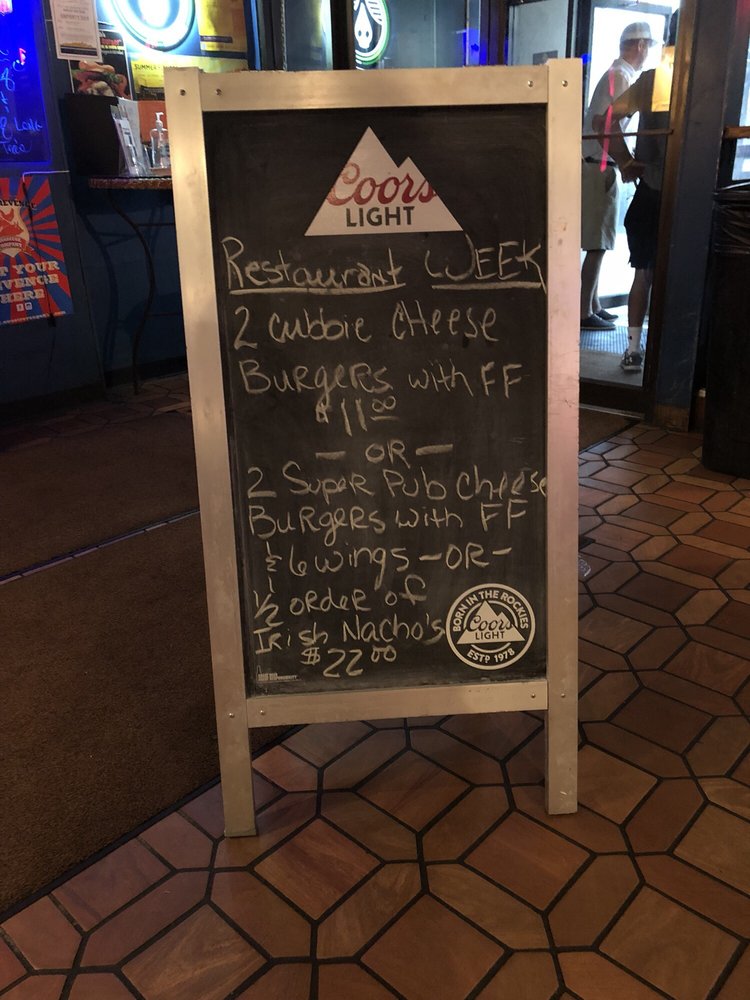 Coors
LIGHT
Restaurant WEEK
2 cubbie CHEESE
BurgeRs with FF
$11.00
- OR -
2 SupeR Pub Cheese
BurgeRs with FF
& 6 wings - OR -
1/2 ORdeR of
IRish Nacho's
$22.00
BORN IN THE ROCKIES
Coors
LIGHT
ESTD 1978
SUMMER
REVENGE
T YOUR
VENGE
HERE